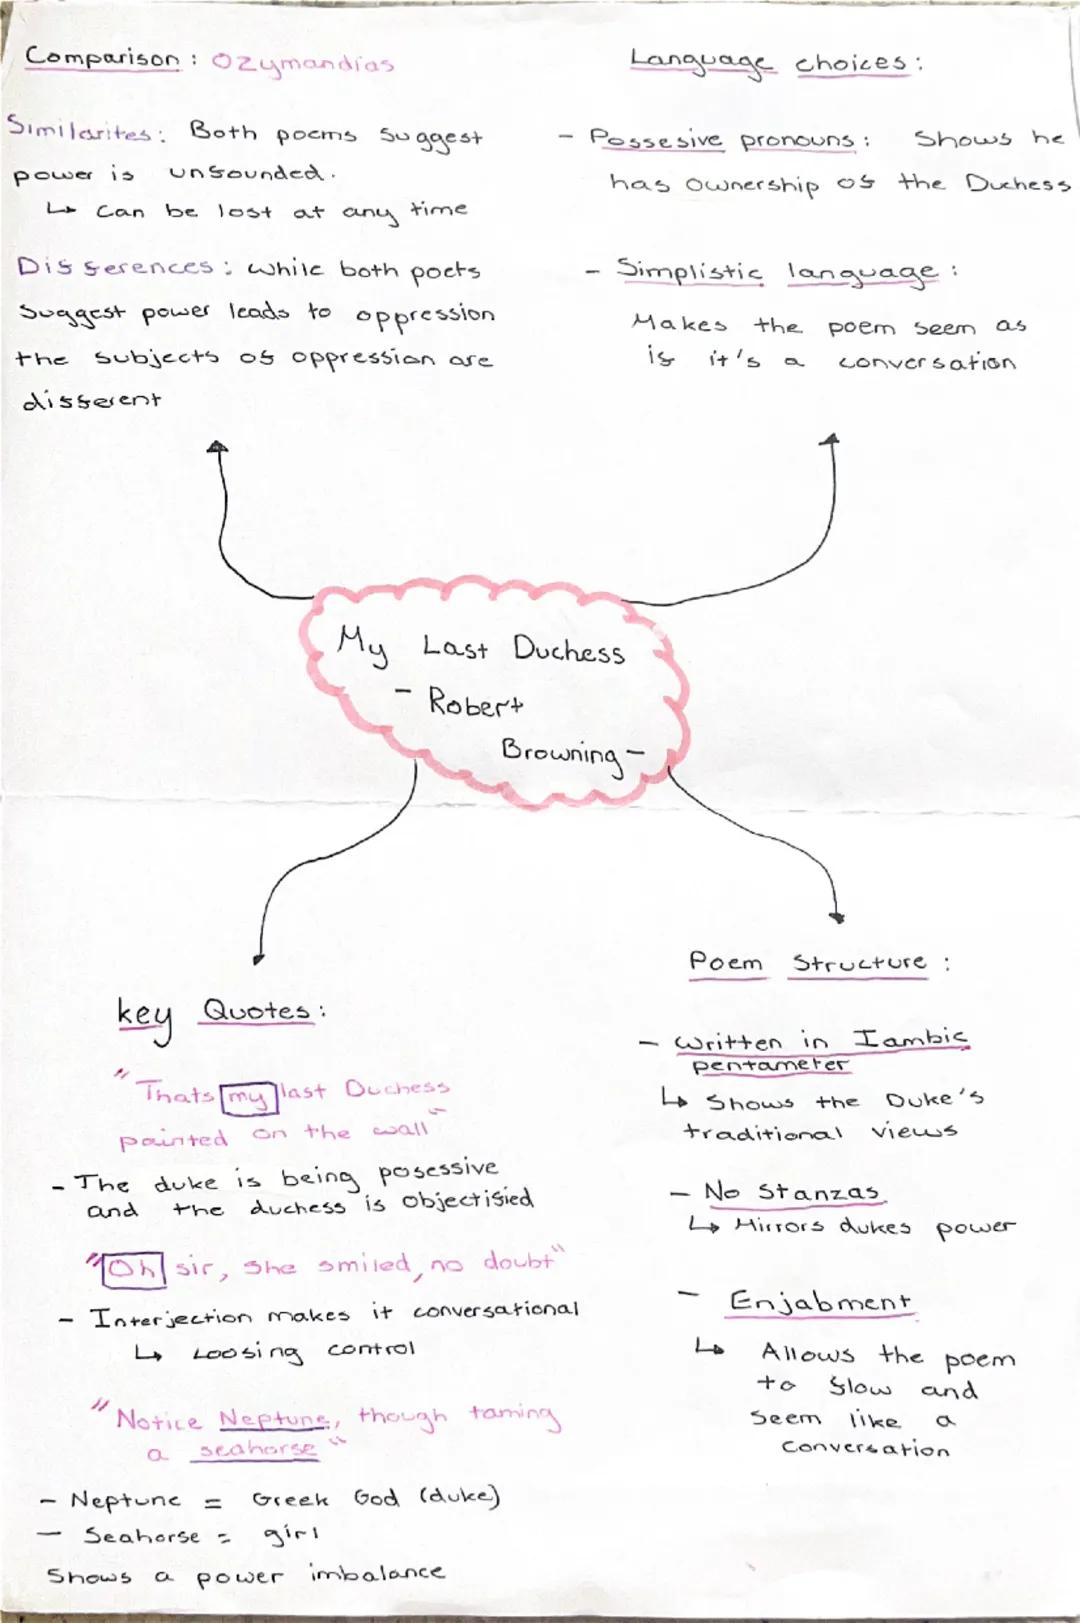 Comparison : Ozymandias
Similarites: Both poems suggest
power is unfounded.
↳ Can be lost at any time
Differences: while both poets
suggest power leads to oppression
the subjects of oppression are
different
Language choices:
- Possesive pronouns: Shows he
has ownership of the Duchess
- Simplistic language:
Makes the poem seem as
if it's a conversation
My Last Duchess
- Robert
Browning -
key Quotes:
"Thats my last Duchess
painted on the wall"
- The duke is being posessive
and the duchess is objectified
"Oh sir, she smiled, no doubt"
- Interjection makes it conversational
↳ Loosing control
"Notice Neptune, though taming
a seahorse"
- Neptune = Greek God (duke)
- Seahorse = girl
Shows a power imbalance
Poem Structure :
- Written in Iambic
pentameter
↳ Shows the Duke's
traditional views
- No Stanzas
↳ Mirrors dukes power
- Enjabment
↳ Allows the poem
to flow and
seem like a
conversation